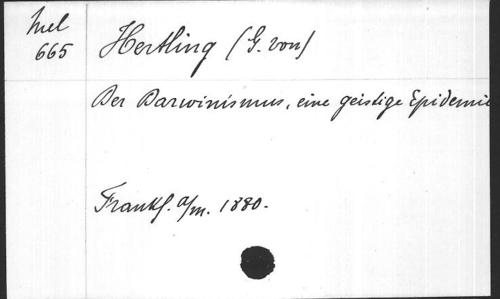 Mel
665
Hertling (G. von)
Der Darwinismus, eine geistige Epidemie
Frankf. a/m. 1880.